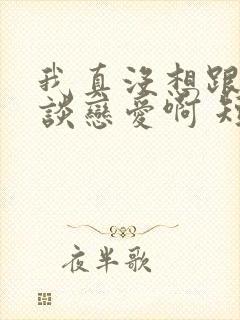 我真沒想跟
談戀愛啊
夜半歌